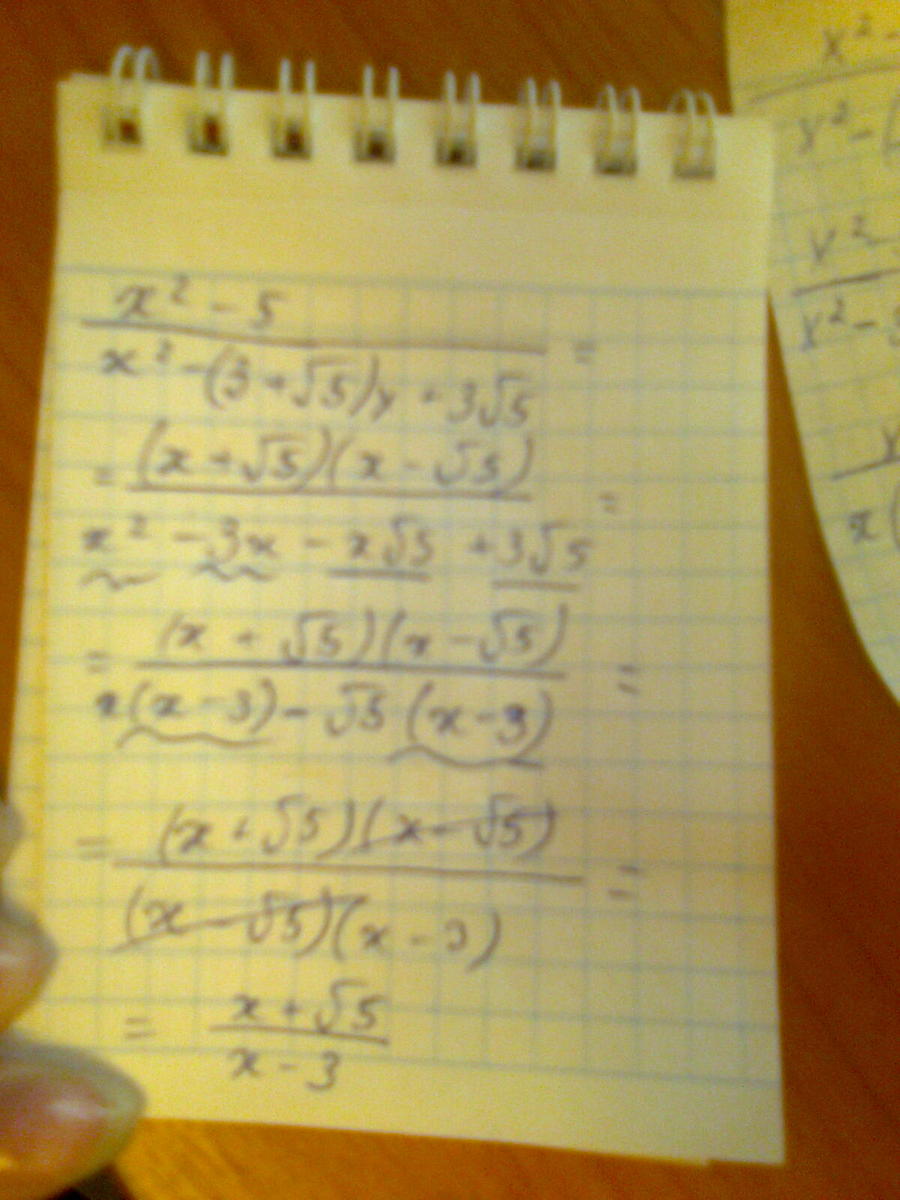 x² - 5
x² - (3 + √5)x + 3√5 =
= (x + √5)(x - √5)
x² - 3x - x√5 + 3√5 =
= (x + √5)(x - √5)
x(x - 3) - √5(x - 3) =
= (x + √5)(x - √5)
(x - √5)(x - 3) =
= x + √5
x - 3
x² -
x² - (
x² -
x² - 3
x
x(